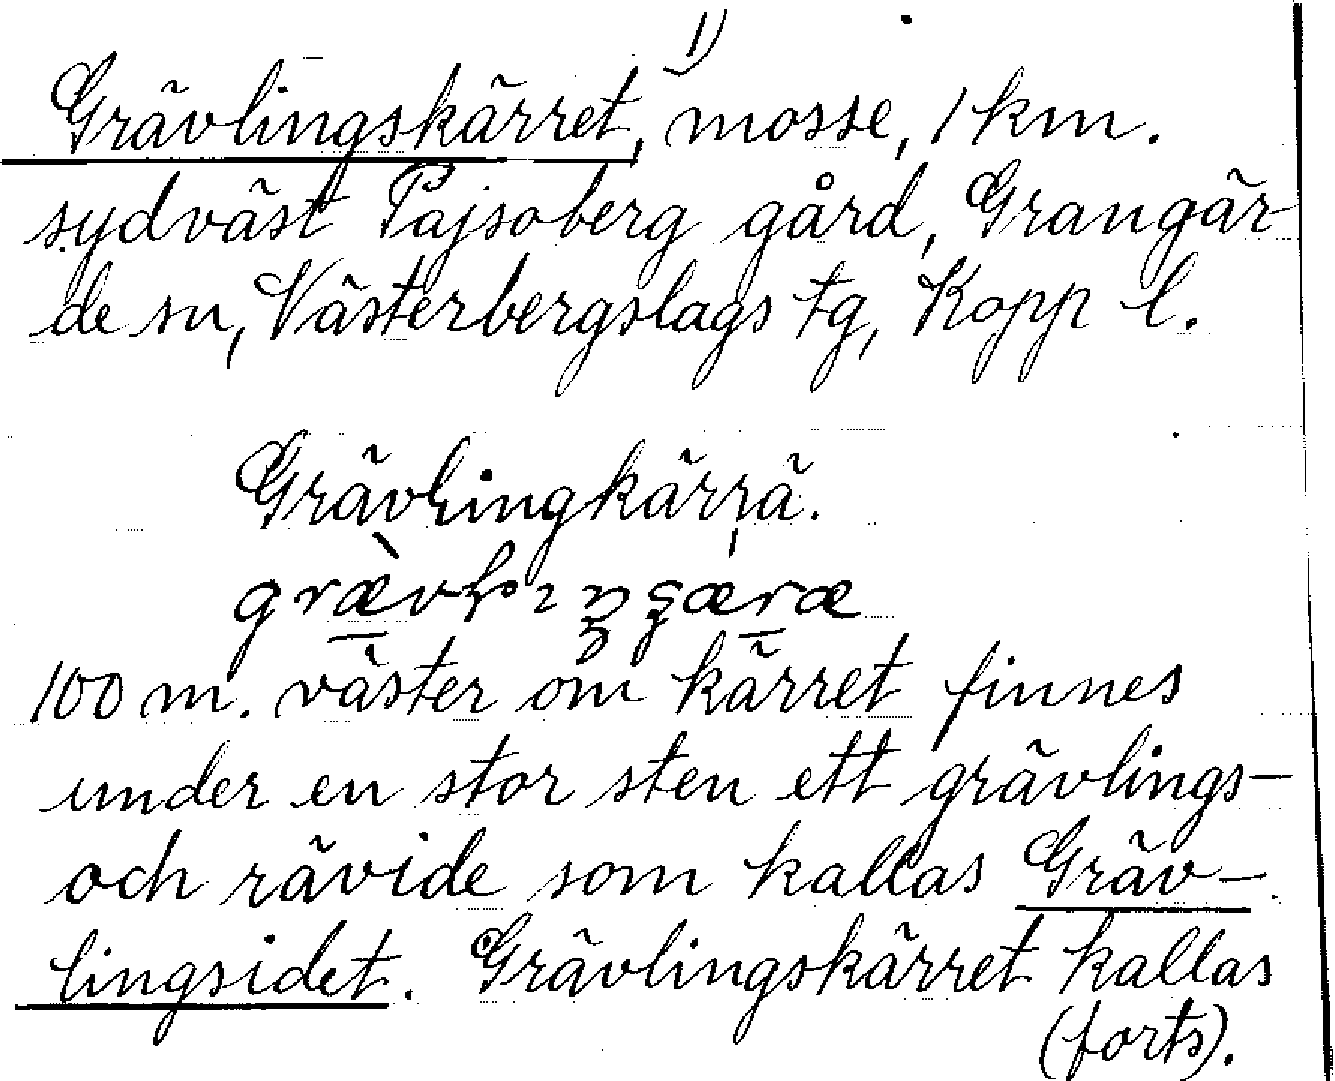 1)
Grävlingskärret, mosse, 1 km.
sydväst Pajsoberg gård, Grangär-
de sn, Västerbergslags tg, Kopp l.
Grävlingkärrä.
100 m. väster om kärret finnes
under en stor sten ett grävlings-
och rävide som kallas Gräv-
lingsidet. Grävlingskärret kallas
(forts).